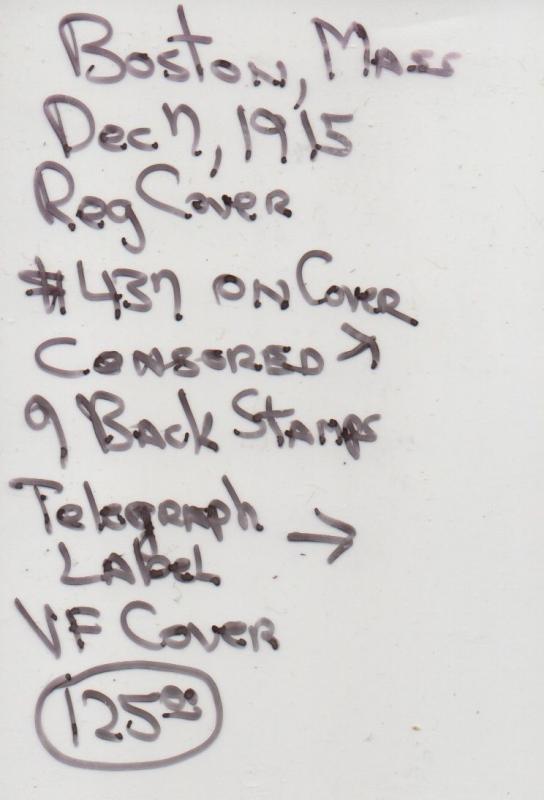 Boston, Mass
Dec 7, 1915
Reg Cover
#437 on Cover
Consered →
9 Back Stamps
Telegraph →
Label
VF Cover
125⁰⁰